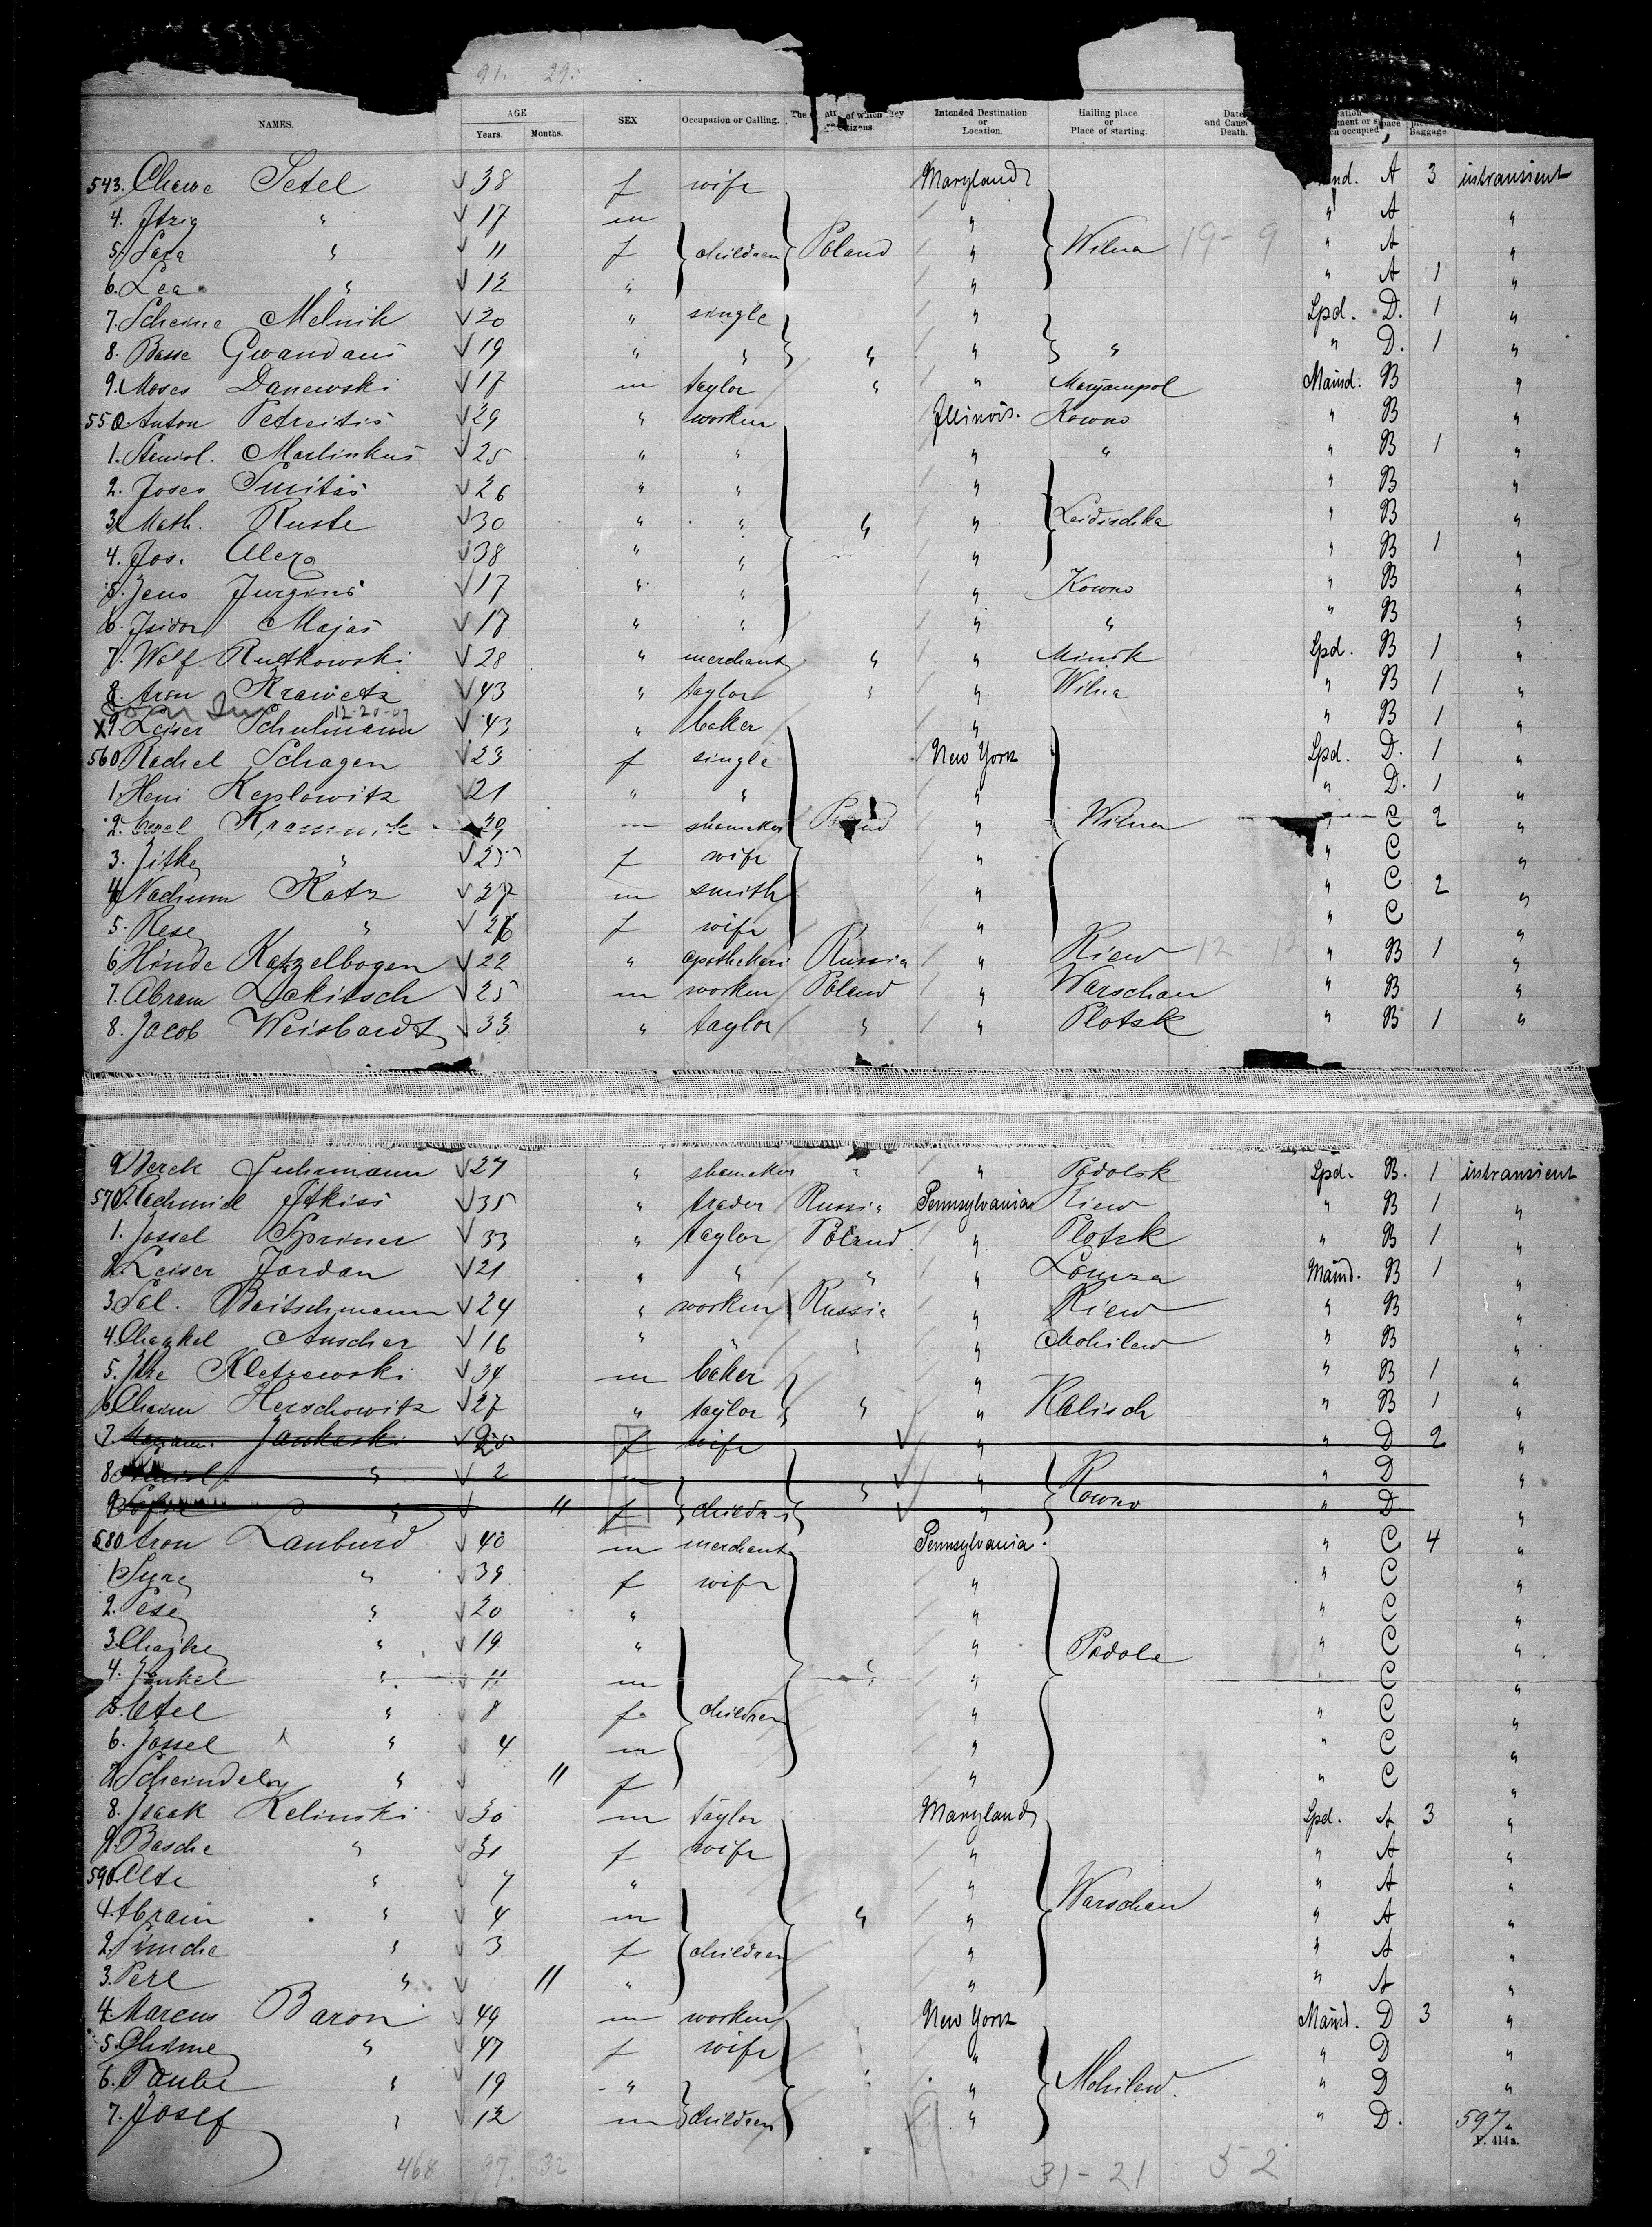 91. 29.
NAMES. AGE Years. Months. SEX Occupation or Calling. The of whom they citizens. Intended Destination or Location. Hailing place or Place of starting. Date and Cause Death. Baggage.
543. Chawe Setel 38 f wife Maryland A 3 intransient
4. Itzig " 17 m " " A "
5. Sara " 11 f children Poland " Wilna 19-9 " A "
6. Lea " 12 " " " A 1 "
7. Scheine Melnik 20 " single " Spd. D. 1 "
8. Basse Gwandaus 19 " " " " " " D. 1 "
9. Moses Danewski 17 m taylor " " Marjampol Maind. B "
550 Anton Petreitis 29 " worker Illinois. Kowno " B "
1. Stanisl. Martinkus 25 " " " " " B 1 "
2. Joses Smitis 26 " " " " B "
3. Math. Ruste 30 " " " " Leidischka " B "
4. Jos. Alex 38 " " " " B 1 "
5. Jens Jurginis 17 " " " Kowno " B "
6. Isidor Majas 17 " " " " " B "
7. Wolf Rutkowski 28 " merchant " " Minsk Spd. B 1 "
8. Aron Krawetz 43 " taylor " " Wilna " B 1 "
12-20-09
X9 Leiser Schulmann 43 " baker " " B 1 "
560 Rachel Schagen 23 f single New York Spd. D. 1 "
1. Heni Keplowitz 21 " " " " D. 1 "
2. 29 m shomeker Poland " Wilna " C 2 "
3. Jitke " 25 f wife " " C "
4. Nachum Katz 27 m smith " " C 2 "
5. Rese " 26 f wife " " C "
6 Hinde Katzelbogen 22 " Russia " Kiew 12-12 " B 1 "
7. Abram Lokitsch 25 m worker Poland " Warschau " B "
8. Jacob Weisbardt 33 " taylor " " Plotzk " B 1 "
9 Berek Fuhrmann 27 " shomeker " " Podolsk Spd. B. 1 intransient
570 Nachmiel Itkiss 35 " trader Russia Pennsylvania Kiew " B 1 "
1. Jossel Spriner 33 " taylor Poland " Plotzk " B 1 "
2. Leiser Jordan 21 " " " " Lomza Maind. B 1 "
3. Sal. Boitschmann 24 " worker Russia " Kiew " B "
4. Chazkel Auscher 16 " " " " Mohilew " B "
5. Itze Kletzewski 34 m baker " " B 1 "
6. Chaim Herschowitz 27 " taylor " " Kalisch " B 1 "
7. Jankeski 25 f wife " " D 2 "
8 " 2 m " " D "
9 Sofie " 11 f children " " Kowno " D "
580 Aron Lanburd 40 m merchant Pennsylvania. " C 4 "
1. " 39 f wife " " C "
2. Pese " 20 " " " C "
3. Chajke " 19 " " Podole " C "
4. Jankel " 11 m " " C "
5. Etel " 8 f children " " C "
6. Jossel " 4 m " " C "
7. Scheindel " 11 f " " C "
8. Isaak Kelinski 30 m taylor Maryland Spd. A 3 "
9. Basche " 31 f wife " " A "
590 Alte " 7 " " Warschau " A "
1. Abram " 4 m " " " A "
2. Simche " 3 f children " " A "
3. Perl " 11 " " " A "
4. Marcus Baron 49 m worker New York Maind. D 3 "
5. " 47 f wife " " D "
6. Taube " 19 " " " Mohilew. " D "
7. Josef " 12 m children " " D. 597
F. 414a.
468 97. 32 31-21 5-2